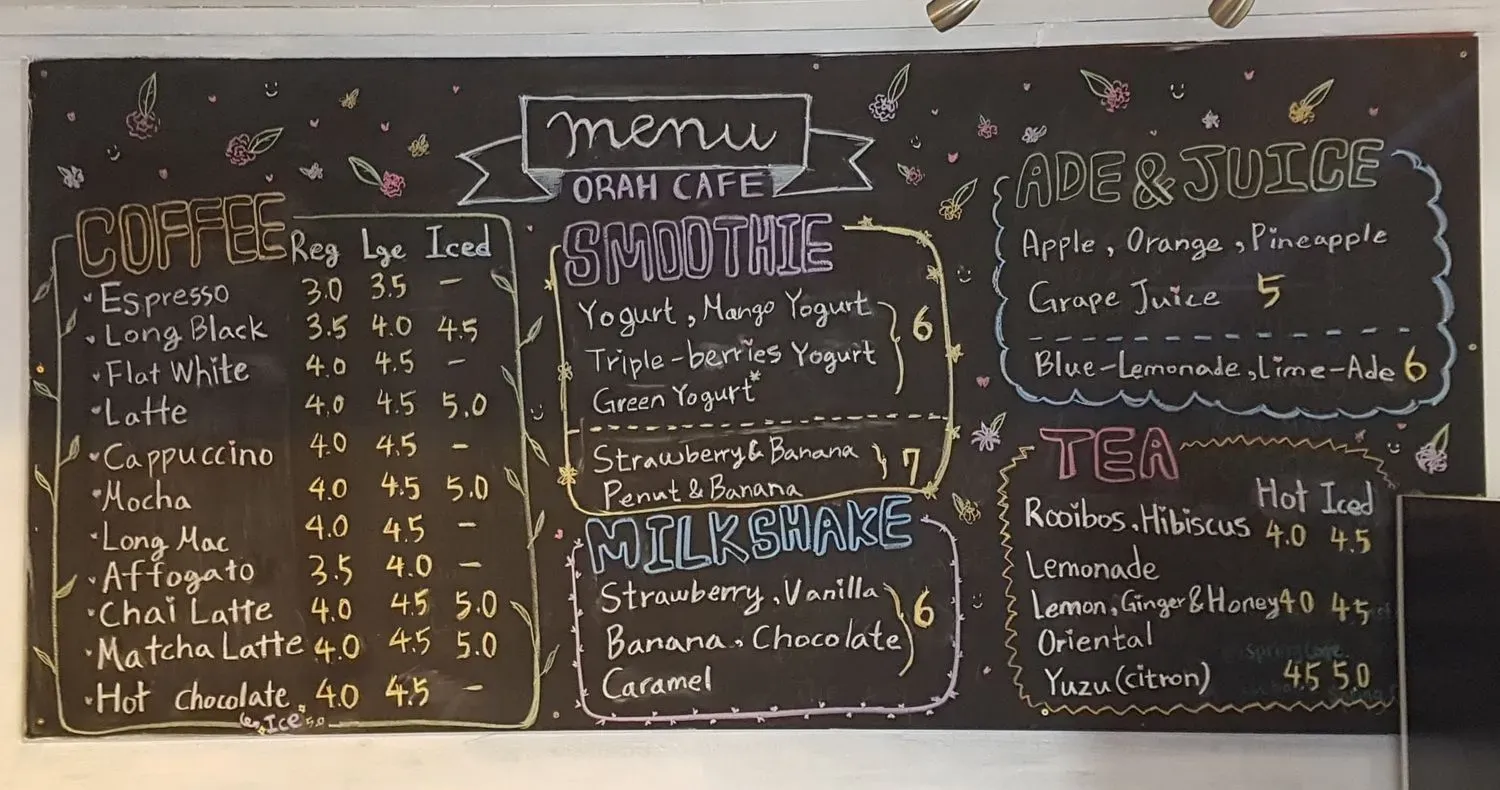 menu
ORAH CAFE
COFFEE Reg Lge Iced
Espresso 3.0 3.5 –
Long Black 3.5 4.0 4.5
Flat White 4.0 4.5 –
Latte 4.0 4.5 5.0
Cappuccino 4.0 4.5 –
Mocha 4.0 4.5 5.0
Long Mac 4.0 4.5 –
Affogato 3.5 4.0 –
Chai Latte 4.0 4.5 5.0
Matcha Latte 4.0 4.5 5.0
Hot chocolate 4.0 4.5 –
Ice 5.0
SMOOTHIE
Yogurt, Mango Yogurt
Triple-berries Yogurt 6
Green Yogurt*
Strawberry & Banana 7
Penut & Banana
MILKSHAKE
Strawberry, Vanilla
Banana, Chocolate 6
Caramel
ADE & JUICE
Apple, Orange, Pineapple
Grape Juice 5
Blue-Lemonade, Lime-Ade 6
TEA
Hot Iced
Rooibos, Hibiscus 4.0 4.5
Lemonade
Lemon, Ginger & Honey 40 45
Oriental
Yuzu (citron) 45 50